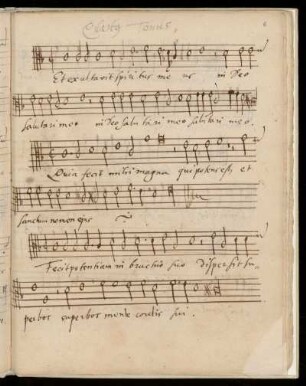 Octavus Tonus.
Et exultavit spiritus me us in Deo
salutari meo in Deo salutari meo salutari meo.
Quia fecit mihi magna qui potens est et
sanctum nomen eius
Fecit potentiam in brachio suo dispersit su
perbos superbos mente cordis sui.